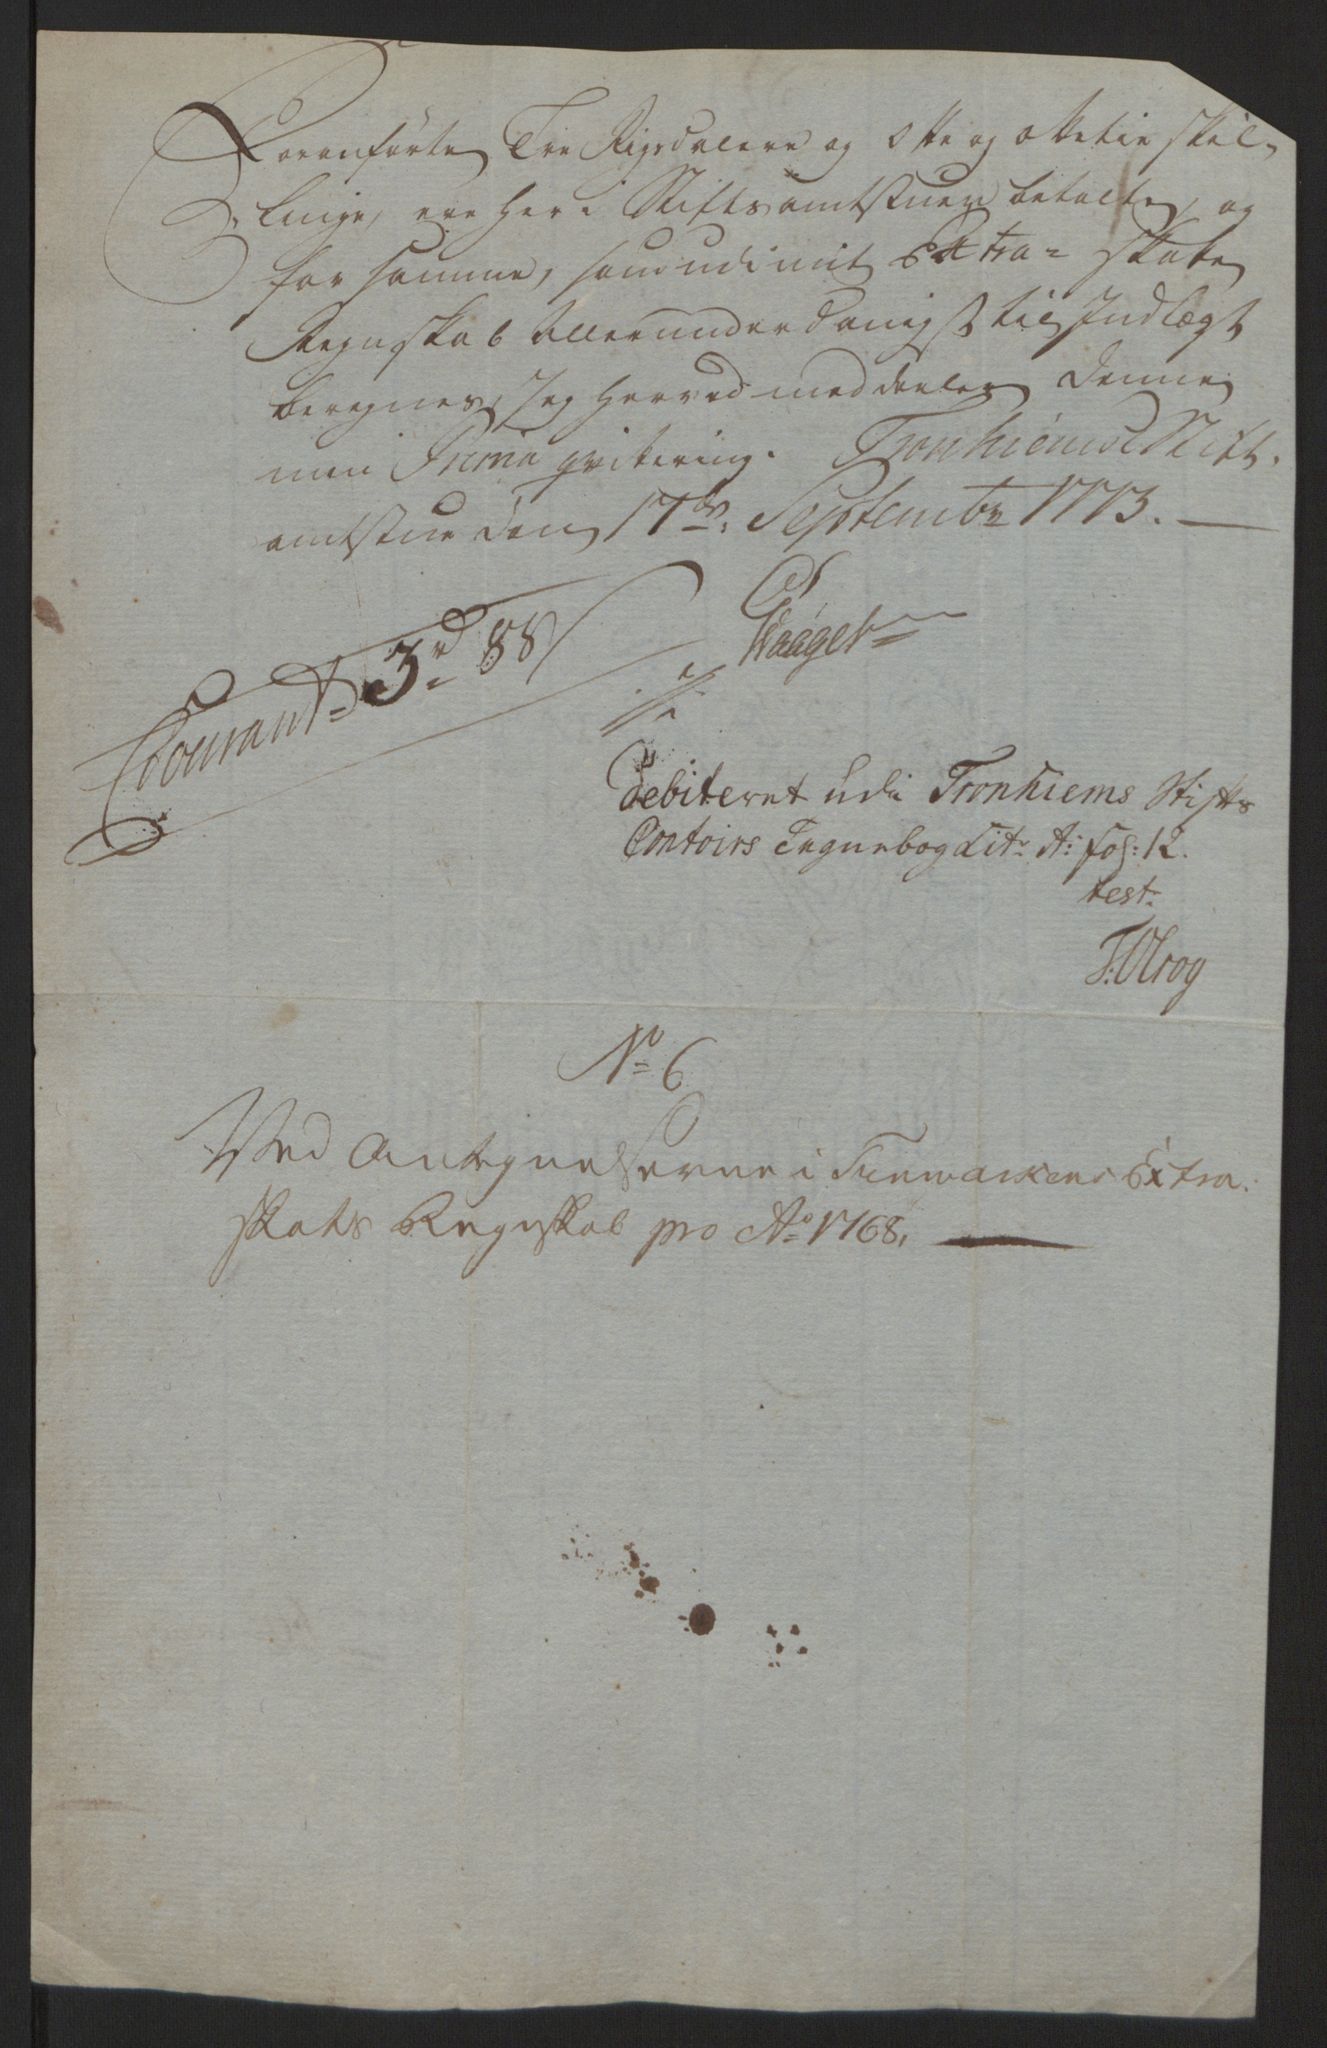 Foranførte Tre Rigsdalere og Otte og otketie skil-
linge, ere her i Stiftsamtstuen betalte, og
for samme, som udi mit Extra- Skatte
Regnskab allerunderdanigst til Indtægt
beregnes, Jeg herved meddeeler denne
min Prima qvitering. Tronhiems Stift-
amtstue den 17de Septembr 1773.
Courant 3rd 88s
Debiteret udi Tronhiems Stifts
Contoirs Tegnebog Litr A: fol: 12.
test.
T: Olrog
No 6
Ved Antegnelserne i Finmarkens Extra
skats Regnskab pro Ao 1768.